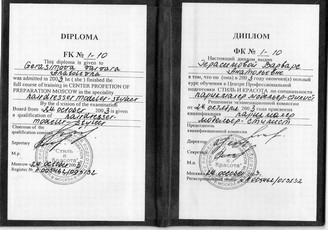 DIPLOMA
FK № 1-10
This diploma is given to
Gerasimova Varvara
Anatolevna
was admitted to 2003 he ( she ) finished the
full course of training in CENTER PROFETION OF
PREPARATION MOSCOW in the speciality
By the d vision of the examination
Board from 24 october 2003 conferred
a qualification of hairdresser
Chairman of the
qualification
Secretary
Moscow 24 october 2003
Register №
ДИПЛОМ
ФК № 1-10
Настоящий диплом выдан
Герасимовой Варваре
Анатольевне
в том, что он (она) 2003 году окончил(а) полный
курс обучения в Центре Профессиональной
Подготовки СТИЛЬ И КРАСОТА по специальности
парикмахер модельер-стилист
Решением экзаменационной комиссии
от 24 октября 2003
присвоена квалификация парикмахер
модельер-стилист
Председатель
квалификационной
комиссии
Секретарь
Москва 24 октября 2003
Регистрационный №